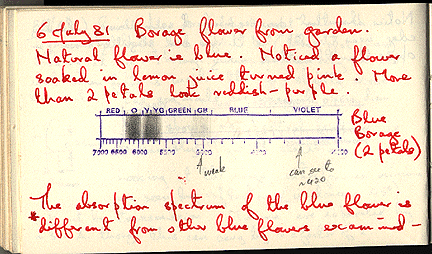 6 July 81 Borage flower from garden.
Natural flower is blue. Noticed a flower
soaked in lemon juice turned pink. More
than 2 petals look reddish-purple.
RED O Y YG GREEN GB BLUE VIOLET
Blue
Borage
(2 petals)
7000 6500 6000
weak
can see to
The absorption spectrum of the blue flower is
*different from other blue flowers examined-